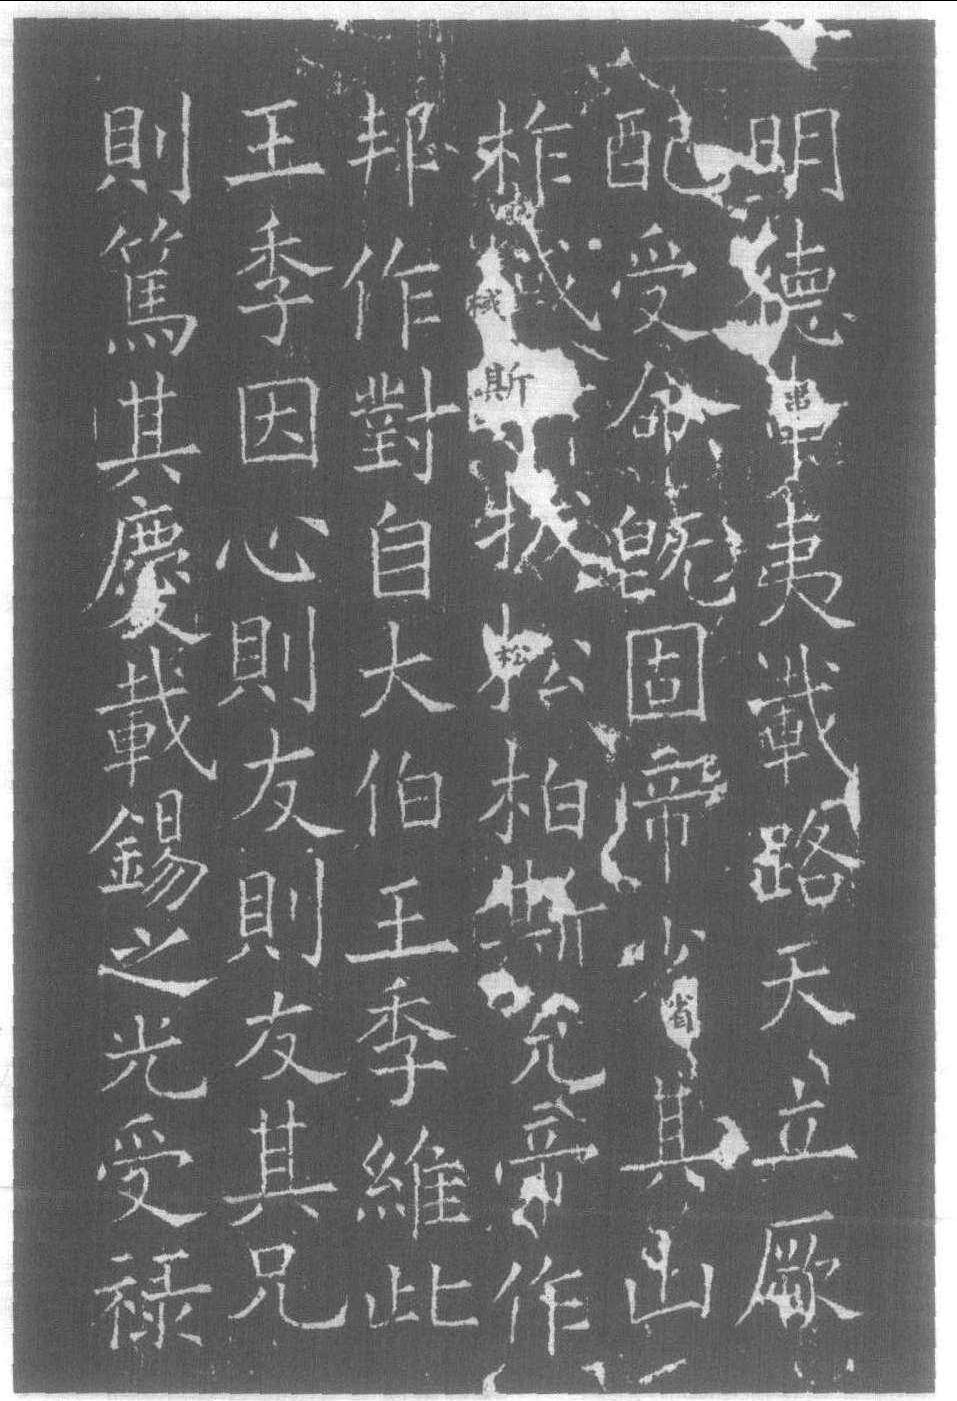 明德串夷載路天立厥
配受命既固帝省其山
柞棫斯拔松柏斯兌帝作
邦作對自大伯王季維此
王季因心則友則友其兄
則篤其慶載錫之光受祿